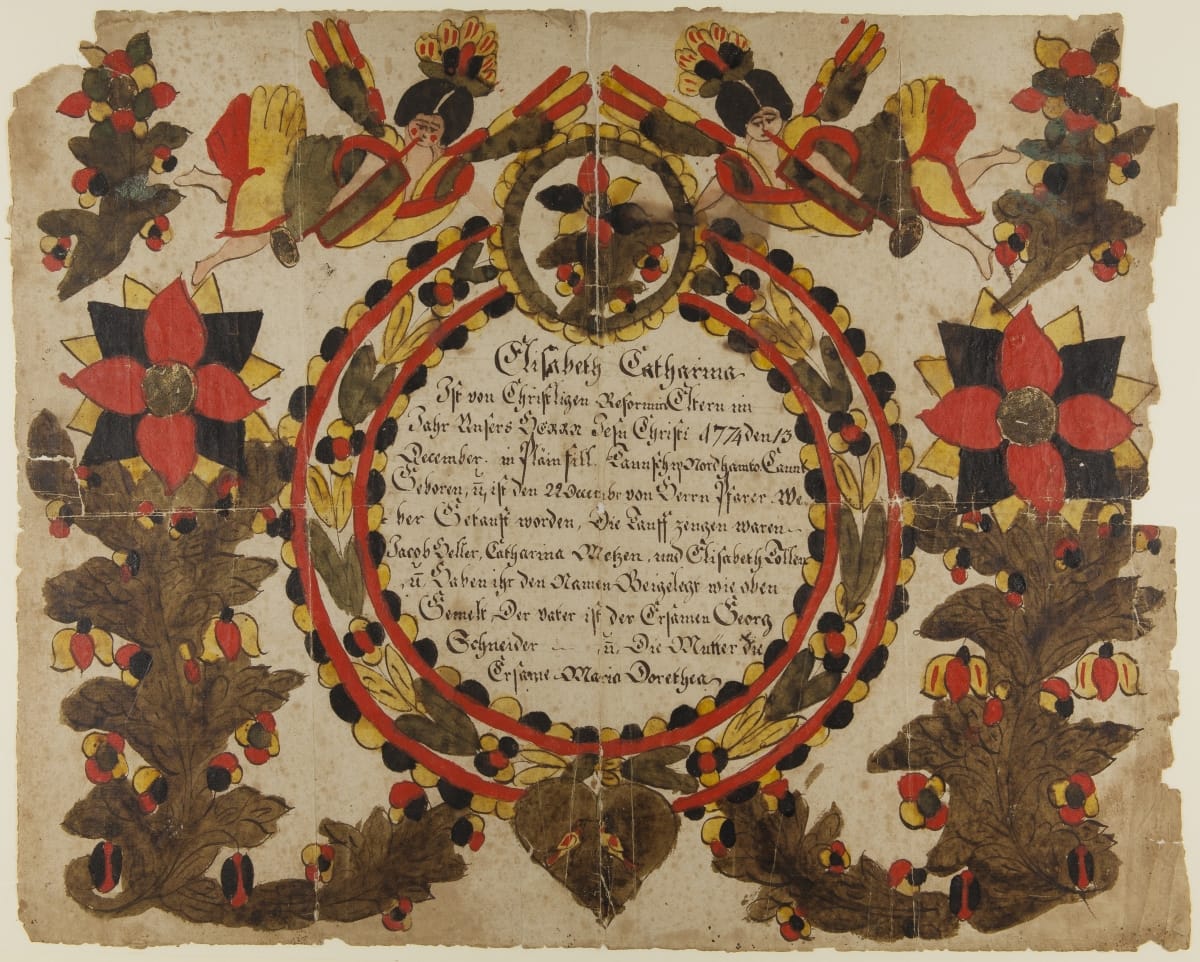 Elisabeth Catharina
Ist von Christligen Reformia Eltern im
Jahr Unsers HERRN Jesu Christi 1774 den 13
December. in Plainfill Taunschip Nordhamto. Caunt
Geboren, ū, ist den 22 Decembr von Herrn Pfarer. We
ber Getauft worden, Die Tauff zeugen waren
Jacob Heller, Catharina Metzen, und Elisabeth
, ū Haben ihr den Namen Beigelegt wie oben
Gemelt Der vater ist der Ersamen Georg
Schneider ū. Die Mutter die
Ersame Maria Dorethea